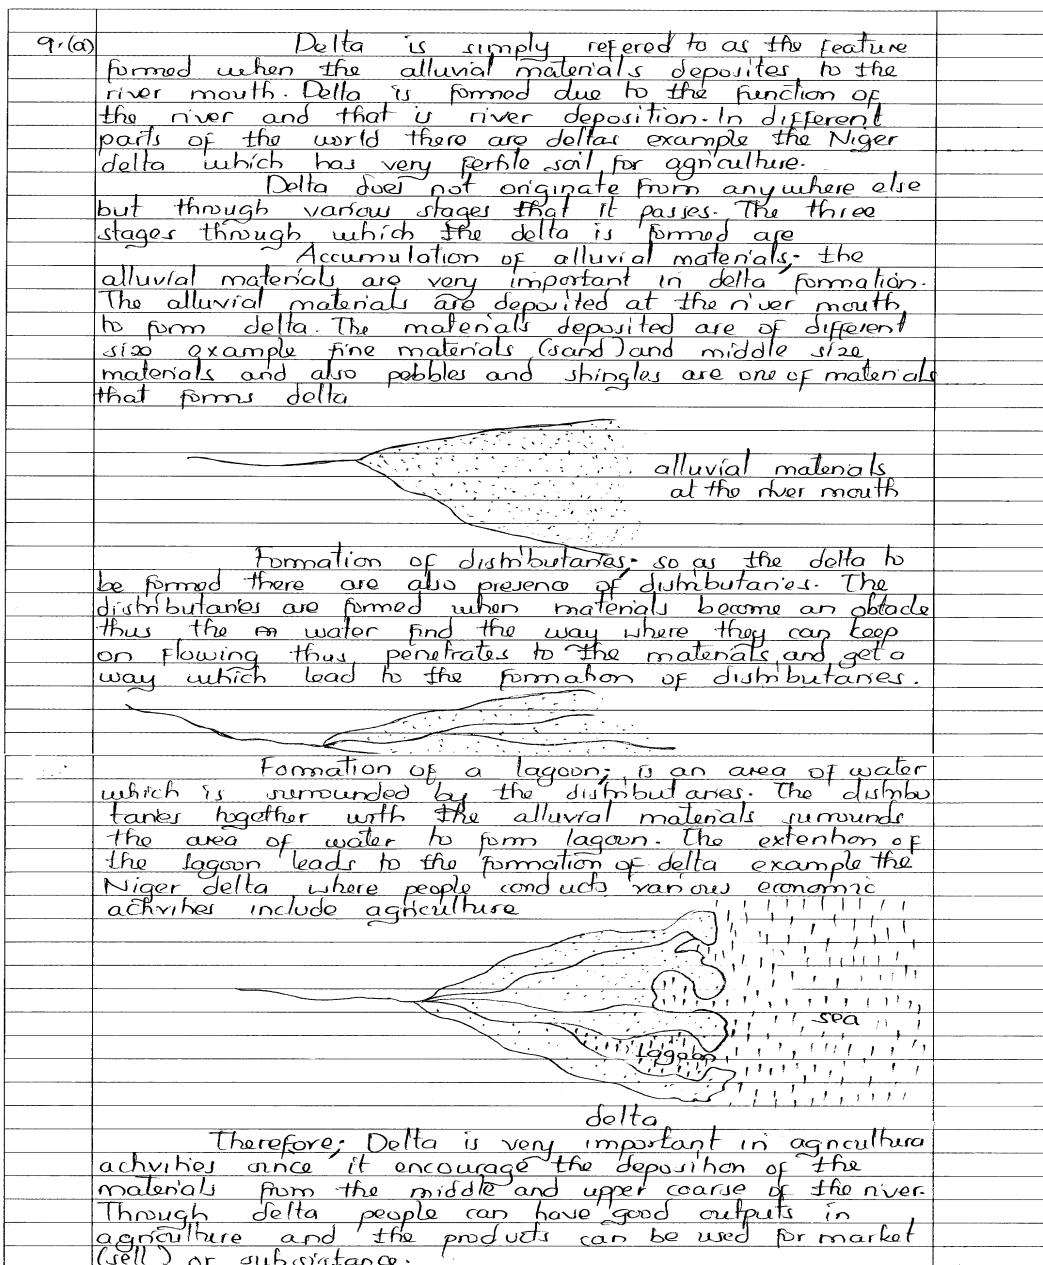 9.(a) Delta is simply refered to as the feature
formed when the alluvial materials deposites to the
river mouth. Delta is formed due to the function of
the river and that is river deposition. In different
parts of the world there are deltas example the Niger
delta which has very fertile soil for agriculture.
Delta does not originate from anywhere else
but through various stages that it passes. The three
stages through which the delta is formed are
Accumulation of alluvial materials; the
alluvial materials are very important in delta formation.
The alluvial materials are deposited at the river mouth
to form delta. The materials deposited are of different
size example fine materials (sand) and middle size
materials and also pebbles and shingles are one of materials
that forms delta
alluvial materials
at the river mouth
Formation of distributaries; so as the delta to
be formed there are also presence of distributaries. The
distributaries are formed when materials become an obtacle
thus the m water find the way where they can keep
on flowing thus penetrates to the materials and get a
way which lead to the formation of distributaries.
Formation of a lagoon; is an area of water
which is surrounded by the distributaries. The distribu
taries together with the alluvial materials surrounds
the area of water to form lagoon. The extention of
the lagoon leads to the formation of delta example the
Niger delta where people conducts various economic
activities include agriculture
sea
lagoon
delta
Therefore; Delta is very important in agriculture
activities since it encourage the deposition of the
materials from the middle and upper coarse of the river.
Through delta people can have good outputs in
agriculture and the products can be used for market
(sell) or subsistance.